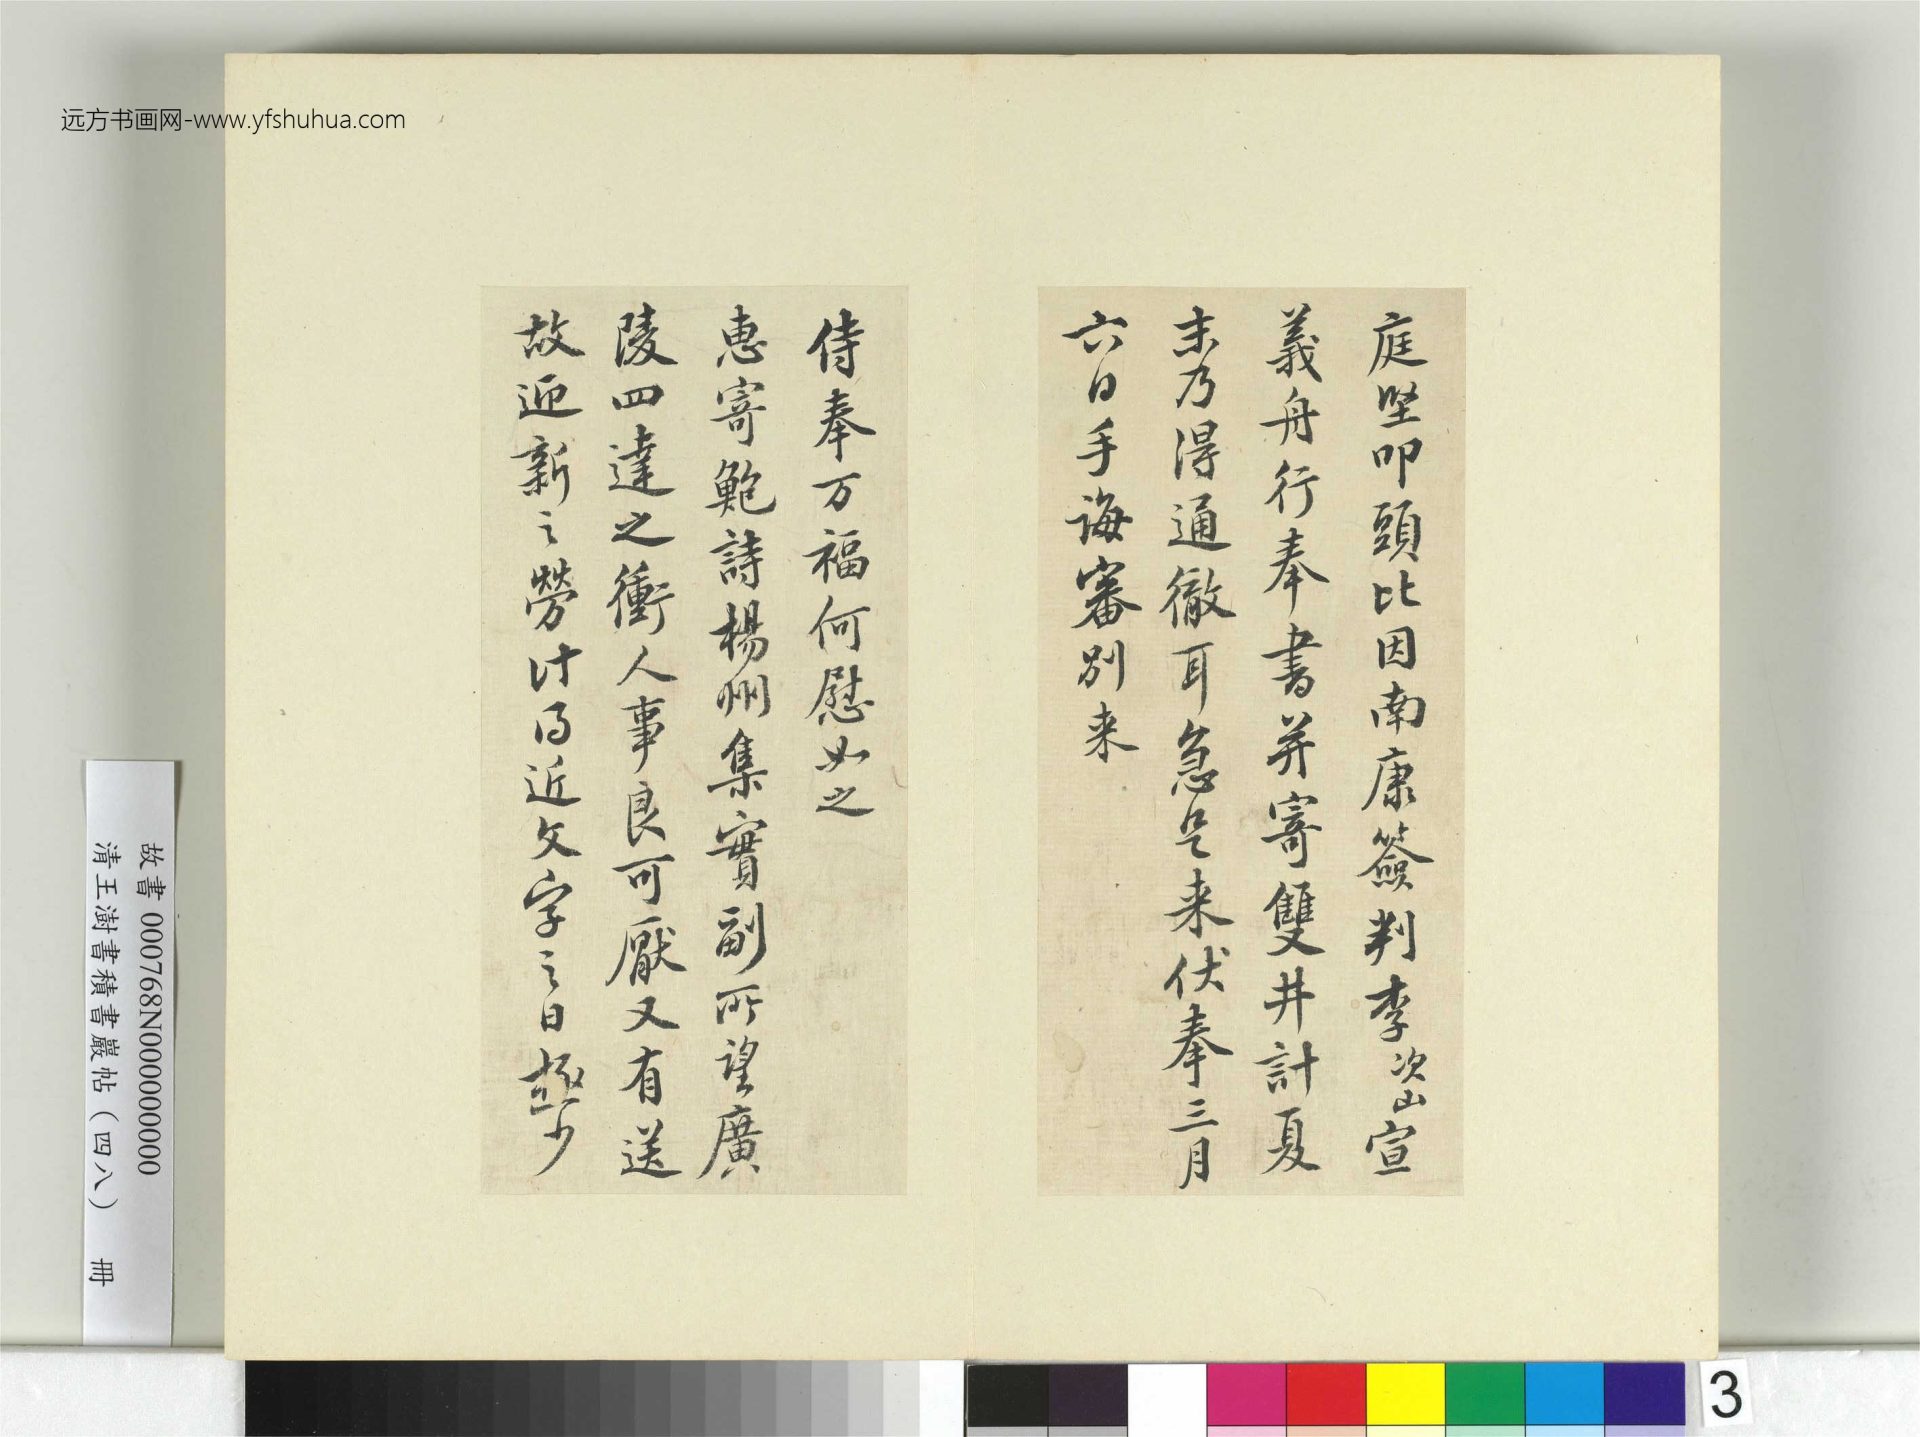 远方书画网-www.yfshuhua.com
庭堅叩頭比因南康簽判李次山宣
義舟行奉書并寄雙井計夏
末乃得通徹耳急足来伏奉三月
六日手誨審別来
侍奉万福何慰如之
惠寄鮑詩楊州集實副所望廣
陵四達之衝人事良可厭又有送
故迎新之勞計得近文字之日極少
故書 000768N000000000
清王澍書積書巖帖(四八) 冊
3